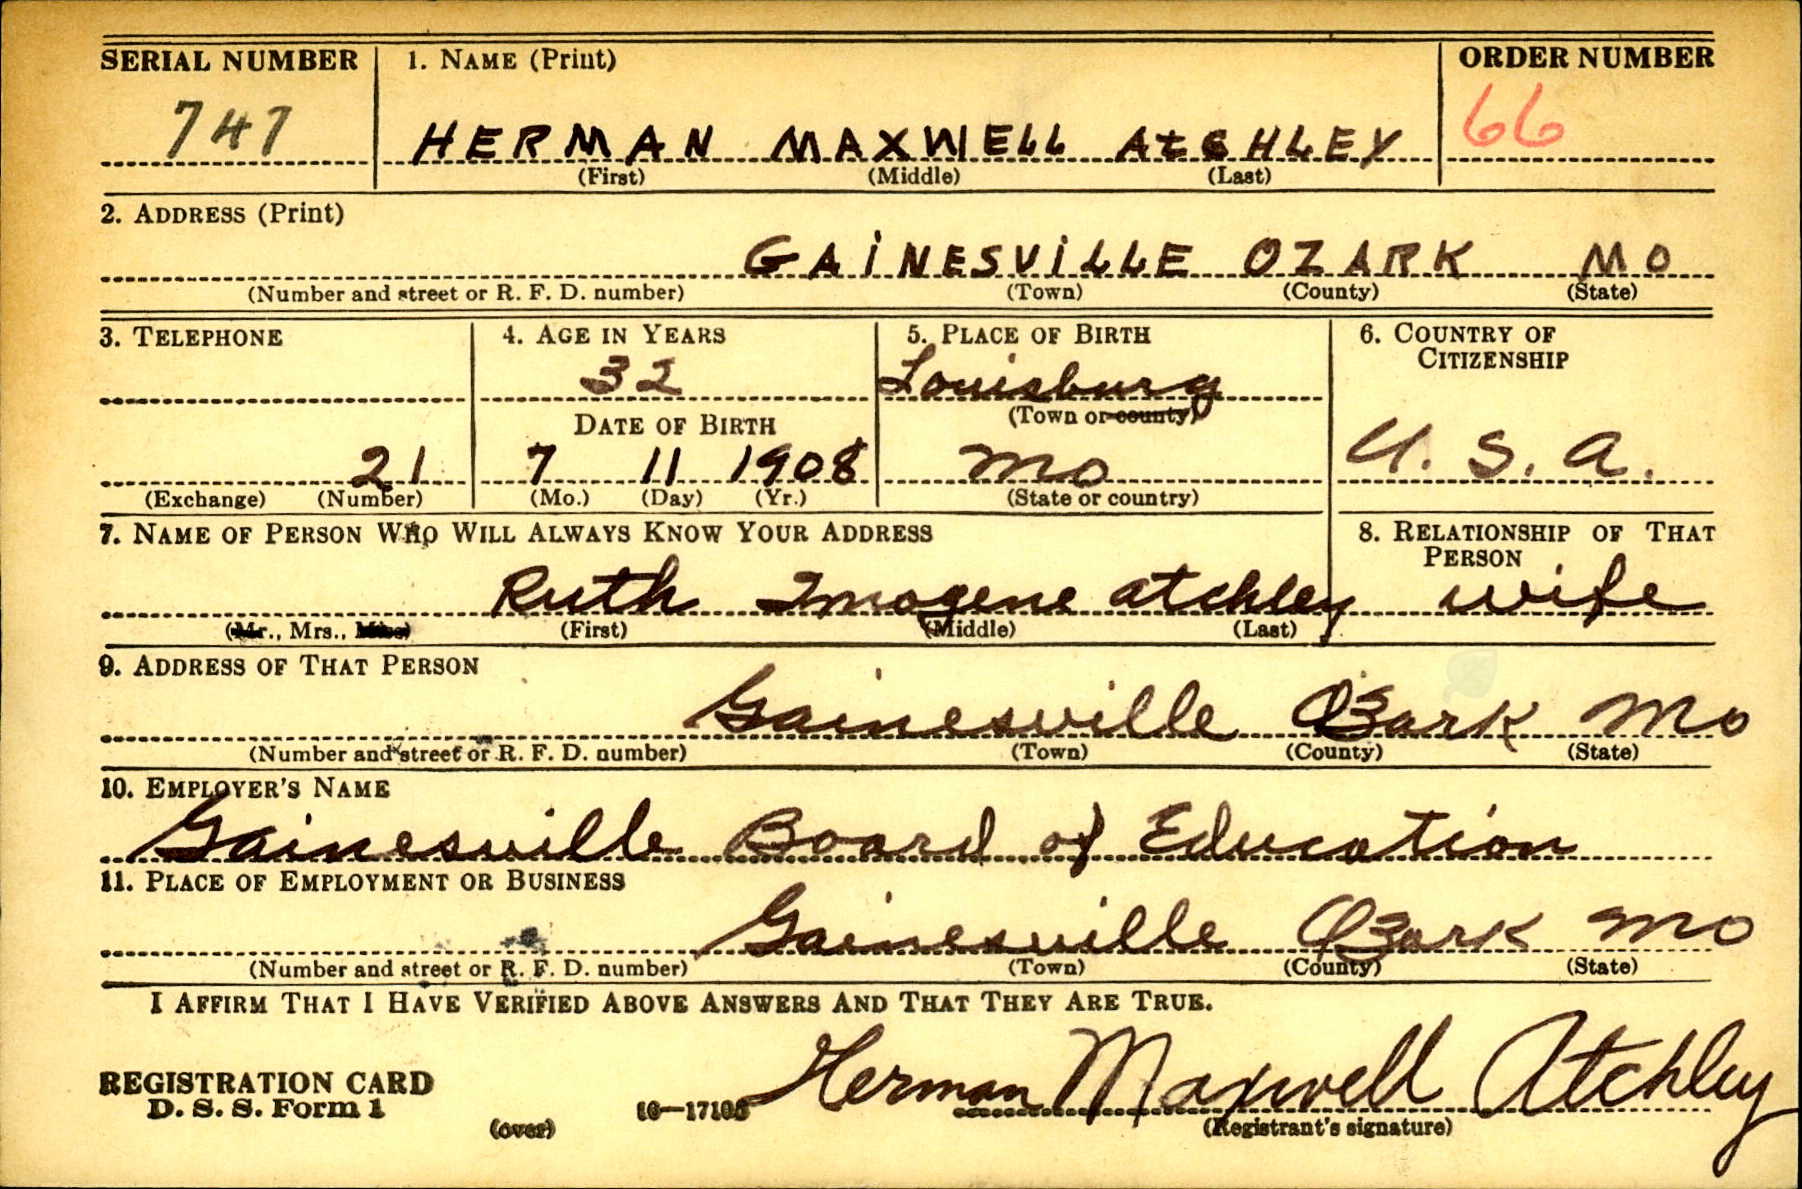 SERIAL NUMBER 1. NAME (Print) ORDER NUMBER
747 HERMAN MAXWELL AtCHLEY 66
(First) (Middle) (Last)
2. ADDRESS (Print)
GAiNESViLLE OZARK MO
(Number and street or R. F. D. number) (Town) (County) (State)
3. TELEPHONE 4. AGE IN YEARS 5. PLACE OF BIRTH 6. COUNTRY OF CITIZENSHIP
32 Louisburg
(Town or county)
DATE OF BIRTH
21 7 11 1908 Mo U. S. A.
(Exchange) (Number) (Mo.) (Day) (Yr.) (State or country)
7. NAME OF PERSON WHO WILL ALWAYS KNOW YOUR ADDRESS 8. RELATIONSHIP OF THAT PERSON
Ruth Imogene Atchley wife
(Mr., Mrs., Miss) (First) (Middle) (Last)
9. ADDRESS OF THAT PERSON
Gainesville Ozark Mo
(Number and street or R. F. D. number) (Town) (County) (State)
10. EMPLOYER'S NAME
Gainesville Board of Education
11. PLACE OF EMPLOYMENT OR BUSINESS
Gainesville Ozark Mo
(Number and street or R. F. D. number) (Town) (County) (State)
I AFFIRM THAT I HAVE VERIFIED ABOVE ANSWERS AND THAT THEY ARE TRUE.
REGISTRATION CARD
D. S. S. Form 1
(over)
Herman Maxwell Atchley
(Registrant's signature)